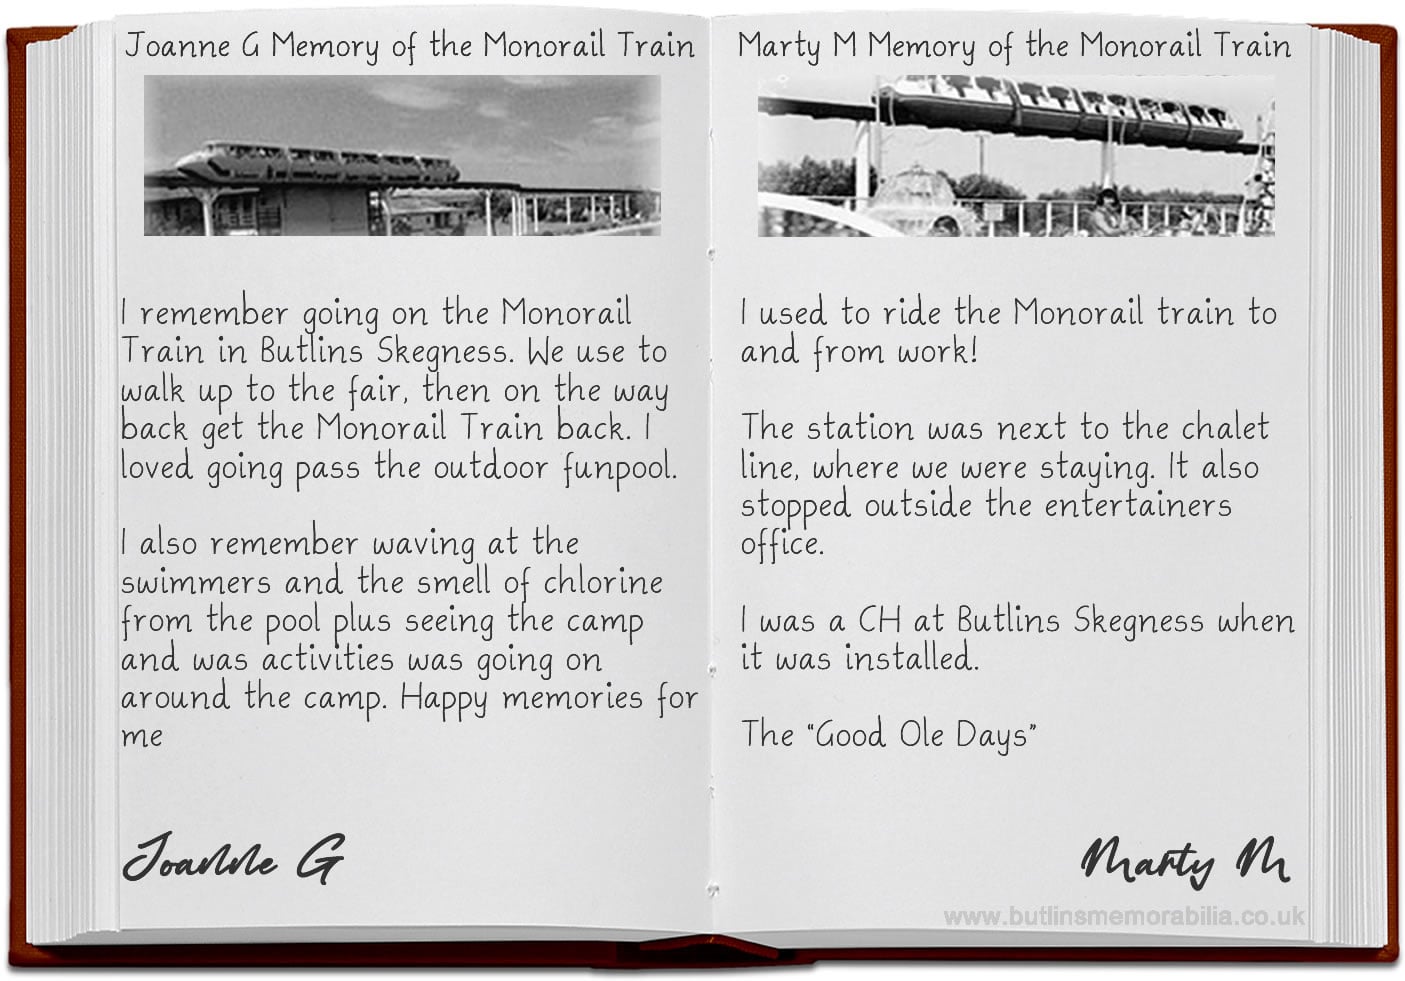 Joanne G Memory of the Monorail Train
I remember going on the Monorail
Train in Butlins Skegness. We use to
walk up to the fair, then on the way
back get the Monorail Train back. I
loved going pass the outdoor funpool.
I also remember waving at the
swimmers and the smell of chlorine
from the pool plus seeing the camp
and was activities was going on
around the camp. Happy memories for
me
Joanne G
Marty M Memory of the Monorail Train
I used to ride the Monorail train to
and from work!
The station was next to the chalet
line, where we were staying. It also
stopped outside the entertainers
office.
I was a CH at Butlins Skegness when
it was installed.
The “Good Ole Days”
Marty M
www.butlinsmemorabilia.co.uk